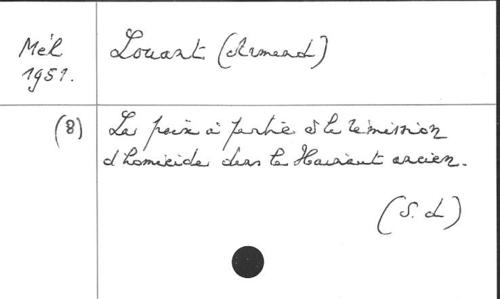 Mél Louant (Armand)
1951.
(8) La paix à partie et la rémission
d'homicide dans le Hainaut ancien.
(S. d.)